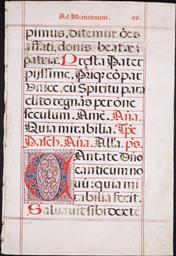 Ad Matutinum. 49.
pimus, Ditemur oẽs
affati, donis beatæ
patriæ. Præsta Pater
piissime, Patriq; cõpar
Vnice, cu Spiritu para
clito regnas per õne
sæculum. Amẽ. Añа.
Quia mirabilia. Tpe
Pasch. Aña. Alla. ps.
Cantate Dño
canticum no
uu: quia mi
rabilia fecit.
Saluauit sibi dexte